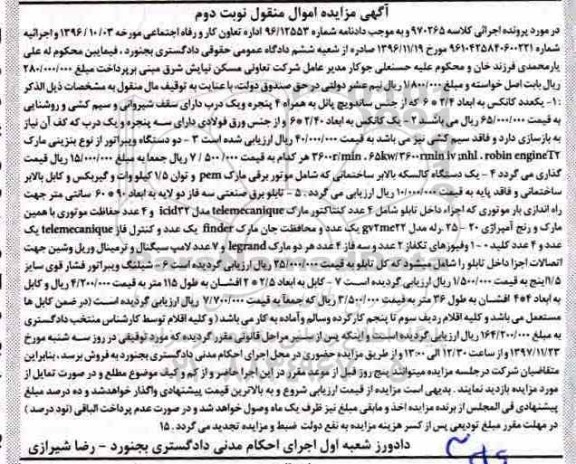 آگهی مزایده اموال منقول نوبت دوم
در مورد پرونده اجرائی کلاسه 970265 و به موجب دادنامه شماره 96/12553 اداره تعاون کار و رفاه اجتماعی مورخه 1396/10/03 و اجرائیه
شماره 9610425840600221 مورخ 1396/11/19 صادره از شعبه ششم دادگاه عمومی حقوقی دادگستری بجنورد، فیمابین محکوم له علی
یارمحمدی فرزند خان و محکوم علیه حسنعلی جوکار مدیر عامل شرکت تعاونی مسکن نیایش شرق مبنی بر پرداخت مبلغ 280/000/000
ریال بابت اصل خواسته و مبلغ 1/800/000 ریال نیم عشر دولتی در حق صندوق دولت، با عنایت به توقیف مال منقول به مشخصات ذیل الذکر
: 1- یکعدد کانکس به ابعاد 2/4 * 6 که از جنس ساندویچ پانل به همراه 4 پنجره و یک درب دارای سقف شیروانی و سیم کشی و روشنایی
به قیمت 65/000/000 ریال می باشد 2 - یک کانکس به ابعاد 2/40 * 6 و از جنس ورق فولادی دارای سه پنجره و یک درب که کف آن نیاز
به بازسازی دارد و فاقد سیم کشی نیز می باشد به قیمت 40/000/000 ریال ارزیابی شده است 3 - دو دستگاه ویبراتور از نوع بنزینی مارک
robin engineT2 ، inhl، 65kw/3600rmin iv، 3600r/min هر کدام به قیمت 7/500/000 ریال جمعا به مبلغ 15/000/000 ریال قیمت
گذاری می گردد 4 - یک دستگاه کالسکه بالابر ساختمانی که شامل موتور برقی مارک pem و توان 1/5 کیلو وات و گیربکس و کابل بالابر
ساختمانی و فاقد پایه به قیمت 10/000/000 ریال ارزیابی می گردد . 5 - تابلو برق صنعتی سه فاز دو لایه به ابعاد 90 * 60 سانتی متر جهت
راه اندازی بار موتوری که اجزاء داخل تابلو شامل 4 عدد کنتاکتور مارک telemecanique مدل icid32 و 4 عدد حفاظت موتوری با همین
مارک و رنج آمپراژی 20 – 25 -رله مدل gv2me22 یک عدد و محافظت جان مارک finder یک عدد و کنترل فاز telemecanique یک
عدد و 4 عدد کلید 0-1 وفیوزهای تکفاز 2 عدد و سه فاز 4 عدد هر دو مارک legrand و 7 عدد لامپ سیگنال و ترمینال وریل وشین جهت
اتصالات اجزا داخل تابلو را شامل میشود که کل تابلو به قیمت 25/000/000 ریال ارزیابی گردیده است 6 - شیلنگ ویبراتور فشار قوی سایز
1/5اینچ به قیمت 1/500/000 ریال ارزیابی گردیده است 7 - کابل به ابعاد 2/5 * 2 افشان به طول 115 متر به قیمت 4/200/000 ریال و کابل
به ابعاد 4*4 افشان به طول 36 متر به قیمت 3/500/000 ریال که جمعا به قیمت 7/700/000 ریال ارزیابی گردیده است (در ضمن کابل ها
مستعمل می باشد و کلیه اقلام ردیف سوم تا پنجم کار کرده وسالم وآماده به کار می باشد ) و کلیه اقلام توسط کارشناس منتخب دادگستری
به مبلغ 164/200/000 ریال ارزیابی گردیده است و اینکه پس از سیر مراحل قانونی مقرر گردیده که مورد توقیفی در روز سه شنبه مورخ
1397/11/23 و از ساعت 12/30 الی 13:00 و از طریق مزایده حضوری در محل اجرای احکام مدنی دادگستری بجنورد به فروش برسد، بنابراین
متقاضیان شرکت در جلسه مزایده میتوانند پنج روز قبل از موعد مقرر در این اجرا حاضر و از کم و کیف موضوع مطلع و در صورت تمایل از
مورد مزایده بازدید نمایند . بدیهی است مزایده از قیمت ارزیابی شروع و به بالاترین قیمت پیشنهادی واگذار خواهدشد و ده درصد مبلغ
پیشنهادی فی المجلس از برنده مزایده اخذ و مابقی مبلغ نیز ظرف یک ماه وصول خواهدشد و در صورت عدم پرداخت الباقی (نود درصد )
در مهلت مقرر مبلغ تودیعی پس از کسر هزینه مزایده به نفع دولت ضبط و مزایده تجدید می گردد . 15
دادورز شعبه اول اجرای احکام مدنی دادگستری بجنورد - رضا شیرازی